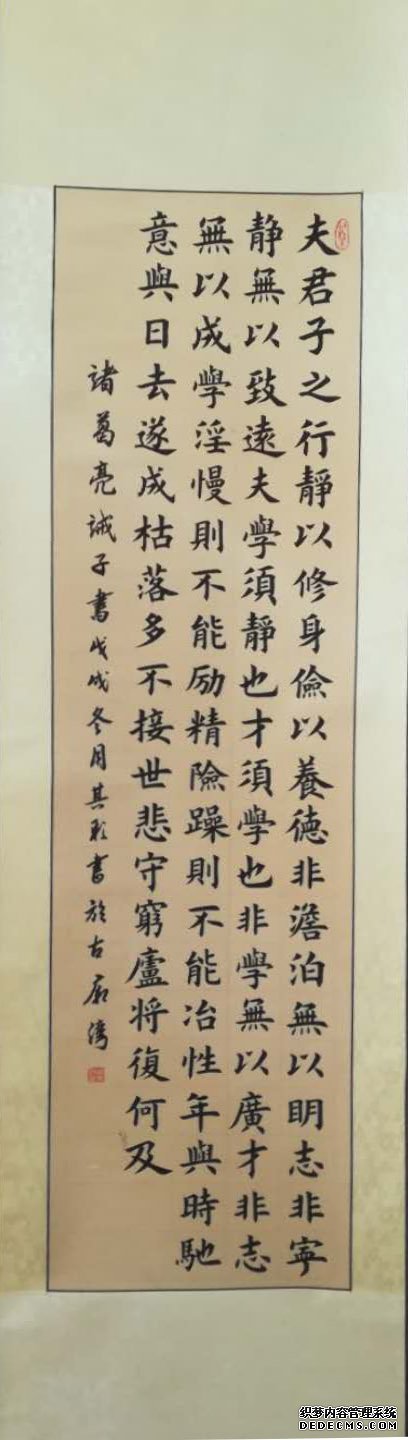 夫君子之行靜以修身儉以養德非澹泊無以明志非寧
靜無以致遠夫學須靜也才須學也非學無以廣才非志
無以成學淫慢則不能励精險躁則不能冶性年與時馳
意與日去遂成枯落多不接世悲守窮廬將復何及
諸葛亮誡子書戊戌冬月其彩書於古廟灣
织梦内容管理系统
DEDECMS.COM